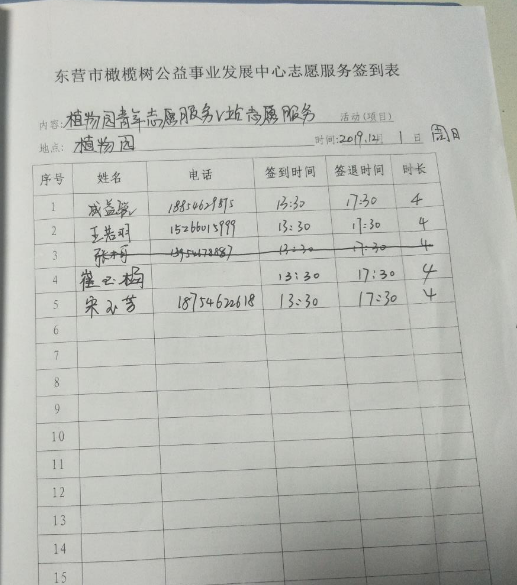 东营市橄榄树公益事业发展中心志愿服务签到表
内容:植物园青年志愿服务V站志愿服务 活动(项目)
地点:植物园 时间:2019.12月1日 周日
序号 姓名 电话 签到时间 签退时间 时长
1 13:30 17:30 4
2 王若羽 15266015999 13:30 17:30 4
3 13:30 17:30 4
4 崔 梅 13:30 17:30 4
5 宋玉芳 18754622618 13:30 17:30 4
6
7
8
9
10
11
12
13
14
15